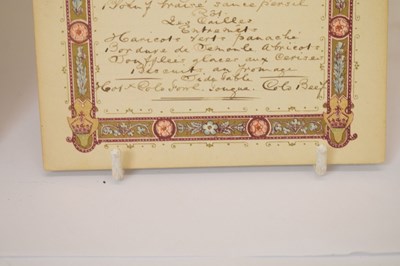 Boeuf braisé sauce persil
Rôt
Les Cailles
Entremets
Haricots Verts panaché
Bordure de Semoule Abricots
Soufflées glacés aux Cerises
Biscuits au fromage
Side table
Hot & Cold Fowl Tongue. Cold Beef